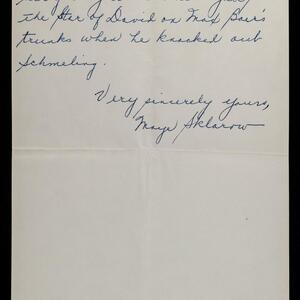 the Star of David on Max Baer's
trunks when he knocked out
Schmeling.
Very sincerely yours,
Maye Sklarow